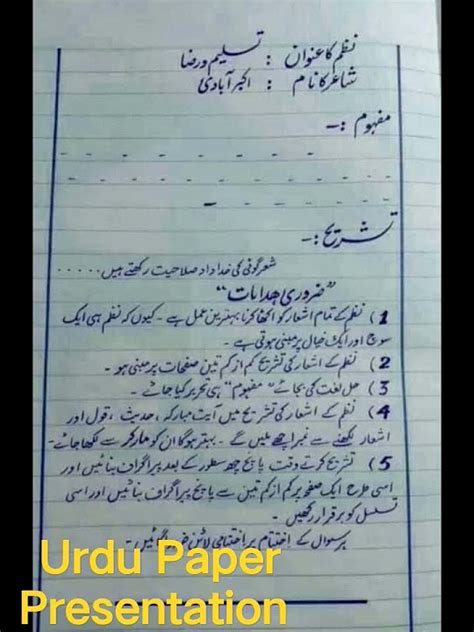 نظم کا عنوان : تسلیم و رضا
شاعر کا نام : اکبر آبادی
مفہوم :-
تشریح :-
شعر گوئی کی خداداد صلاحیت رکھتے ہیں.....
"ضروری ہدایات"
1) نظم کے تمام اشعار کو اکٹھا کرنا بہترین عمل ہے - کیوں کہ نظم ہی ایک
سوچ اور ایک خیال پر مبنی ہوتی ہے
2) نظم کے اشعار کی تشریح کم از کم تین صفحات پر مبنی ہو -
3) حل لغت کی بجائے "مفہوم" ہی تحریر کیا جائے -
4) نظم کے اشعار کی تشریح میں آیت مبارکہ ، حدیث ، قول اور
اشعار لکھنے سے نمبر اچھے ملیں گے - بہتر ہو گا ان کو مارکر سے لکھا جائے-
5) تشریح کرتے وقت پانچ چھ سطور کے بعد پیراگراف بنائیں اور
اسی طرح ایک صفحہ پر کم از کم تین سے پانچ پیراگراف بنائیں اور اسی
تسلسل کو برقرار رکھیں -
ہر سوال کے اختتام پر اختتامی لائن ضرور لگائیں -
Urdu Paper
Presentation